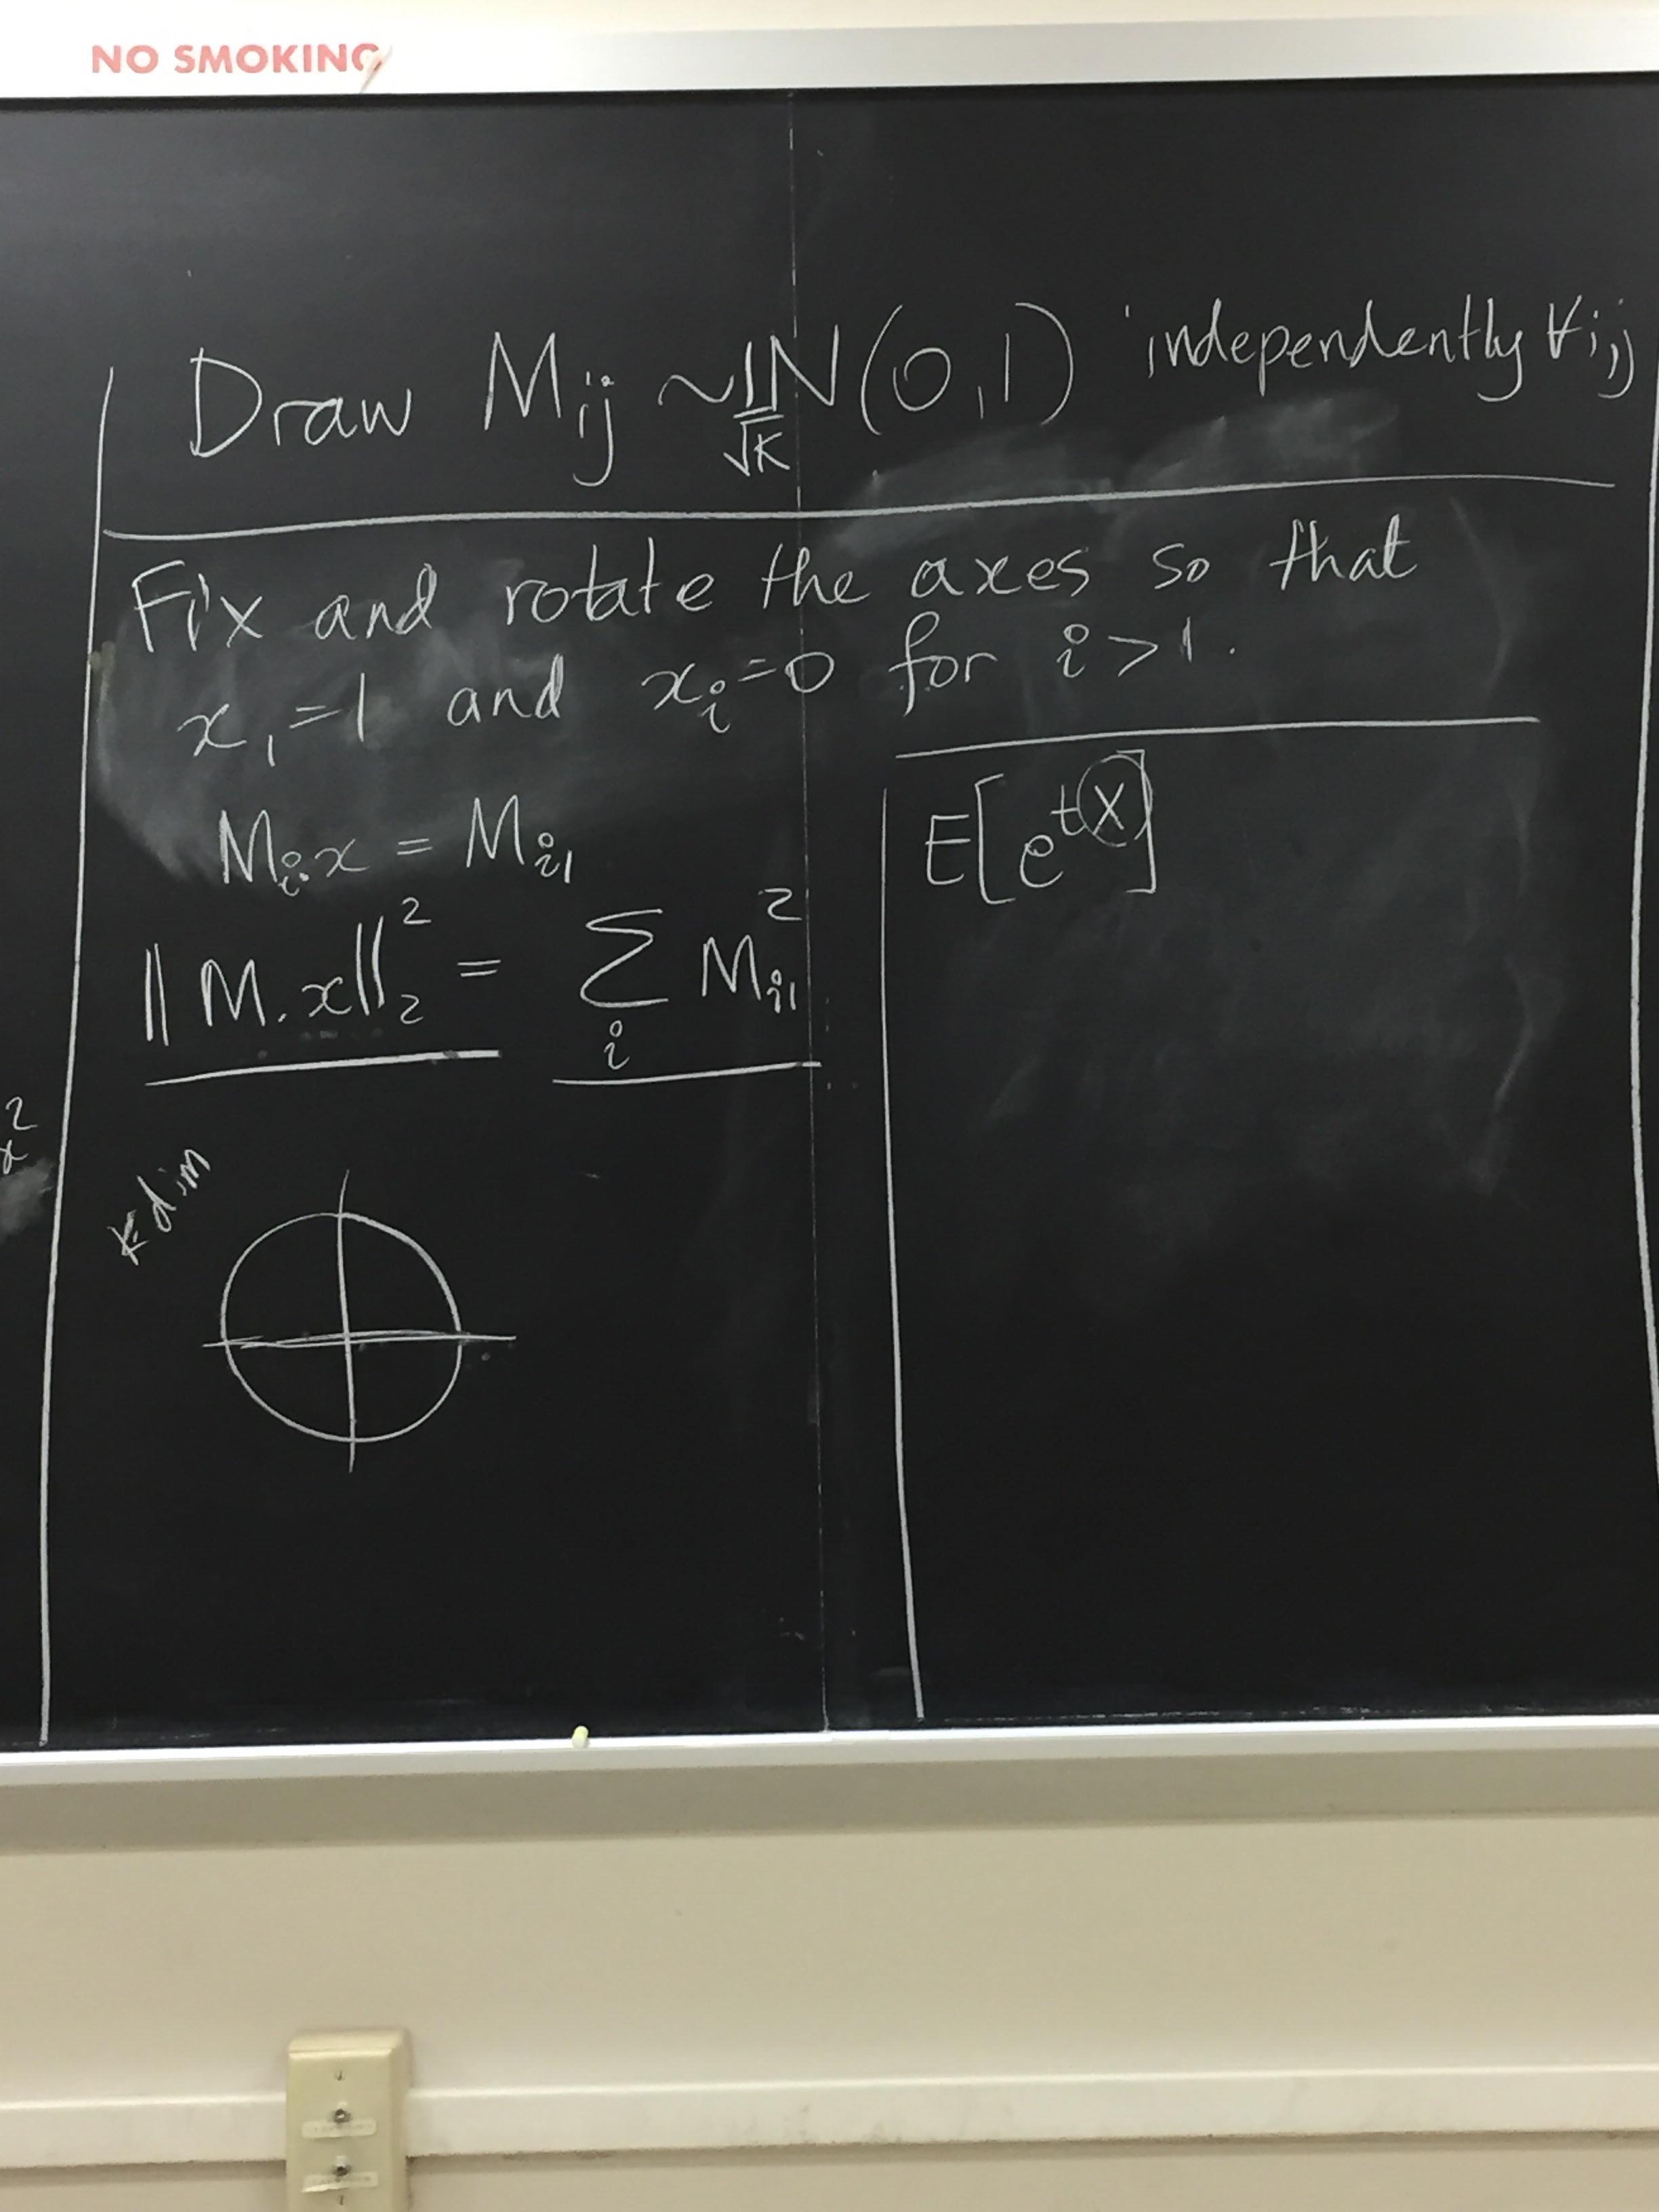 NO SMOKING
Draw M_ij ~ 1/√K N(0,1) independently ∀i,j
Fix and rotate the axes so that
x_1 = 1 and x_i = 0 for i > 1.
M_i·x = M_i1
‖M.x‖_2^2 = Σ_i M_i1^2
K-dim
E[e^{tX}]
x^2